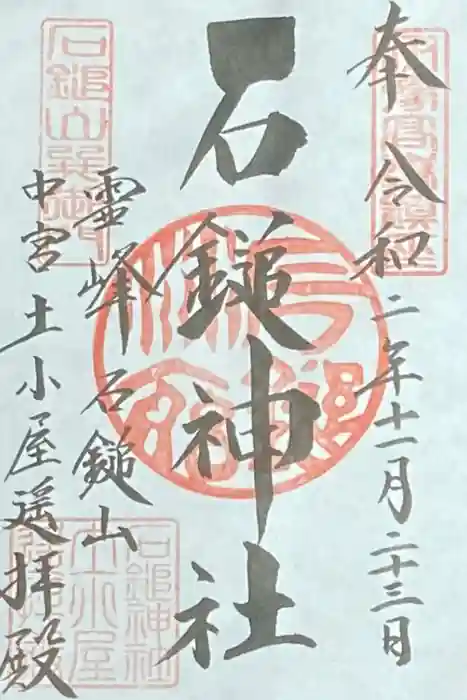 奉 令和二年十一月二十三日
石鎚神社
霊峰石鎚山
中宮土小屋遥拝殿
石鎚神社
土小屋